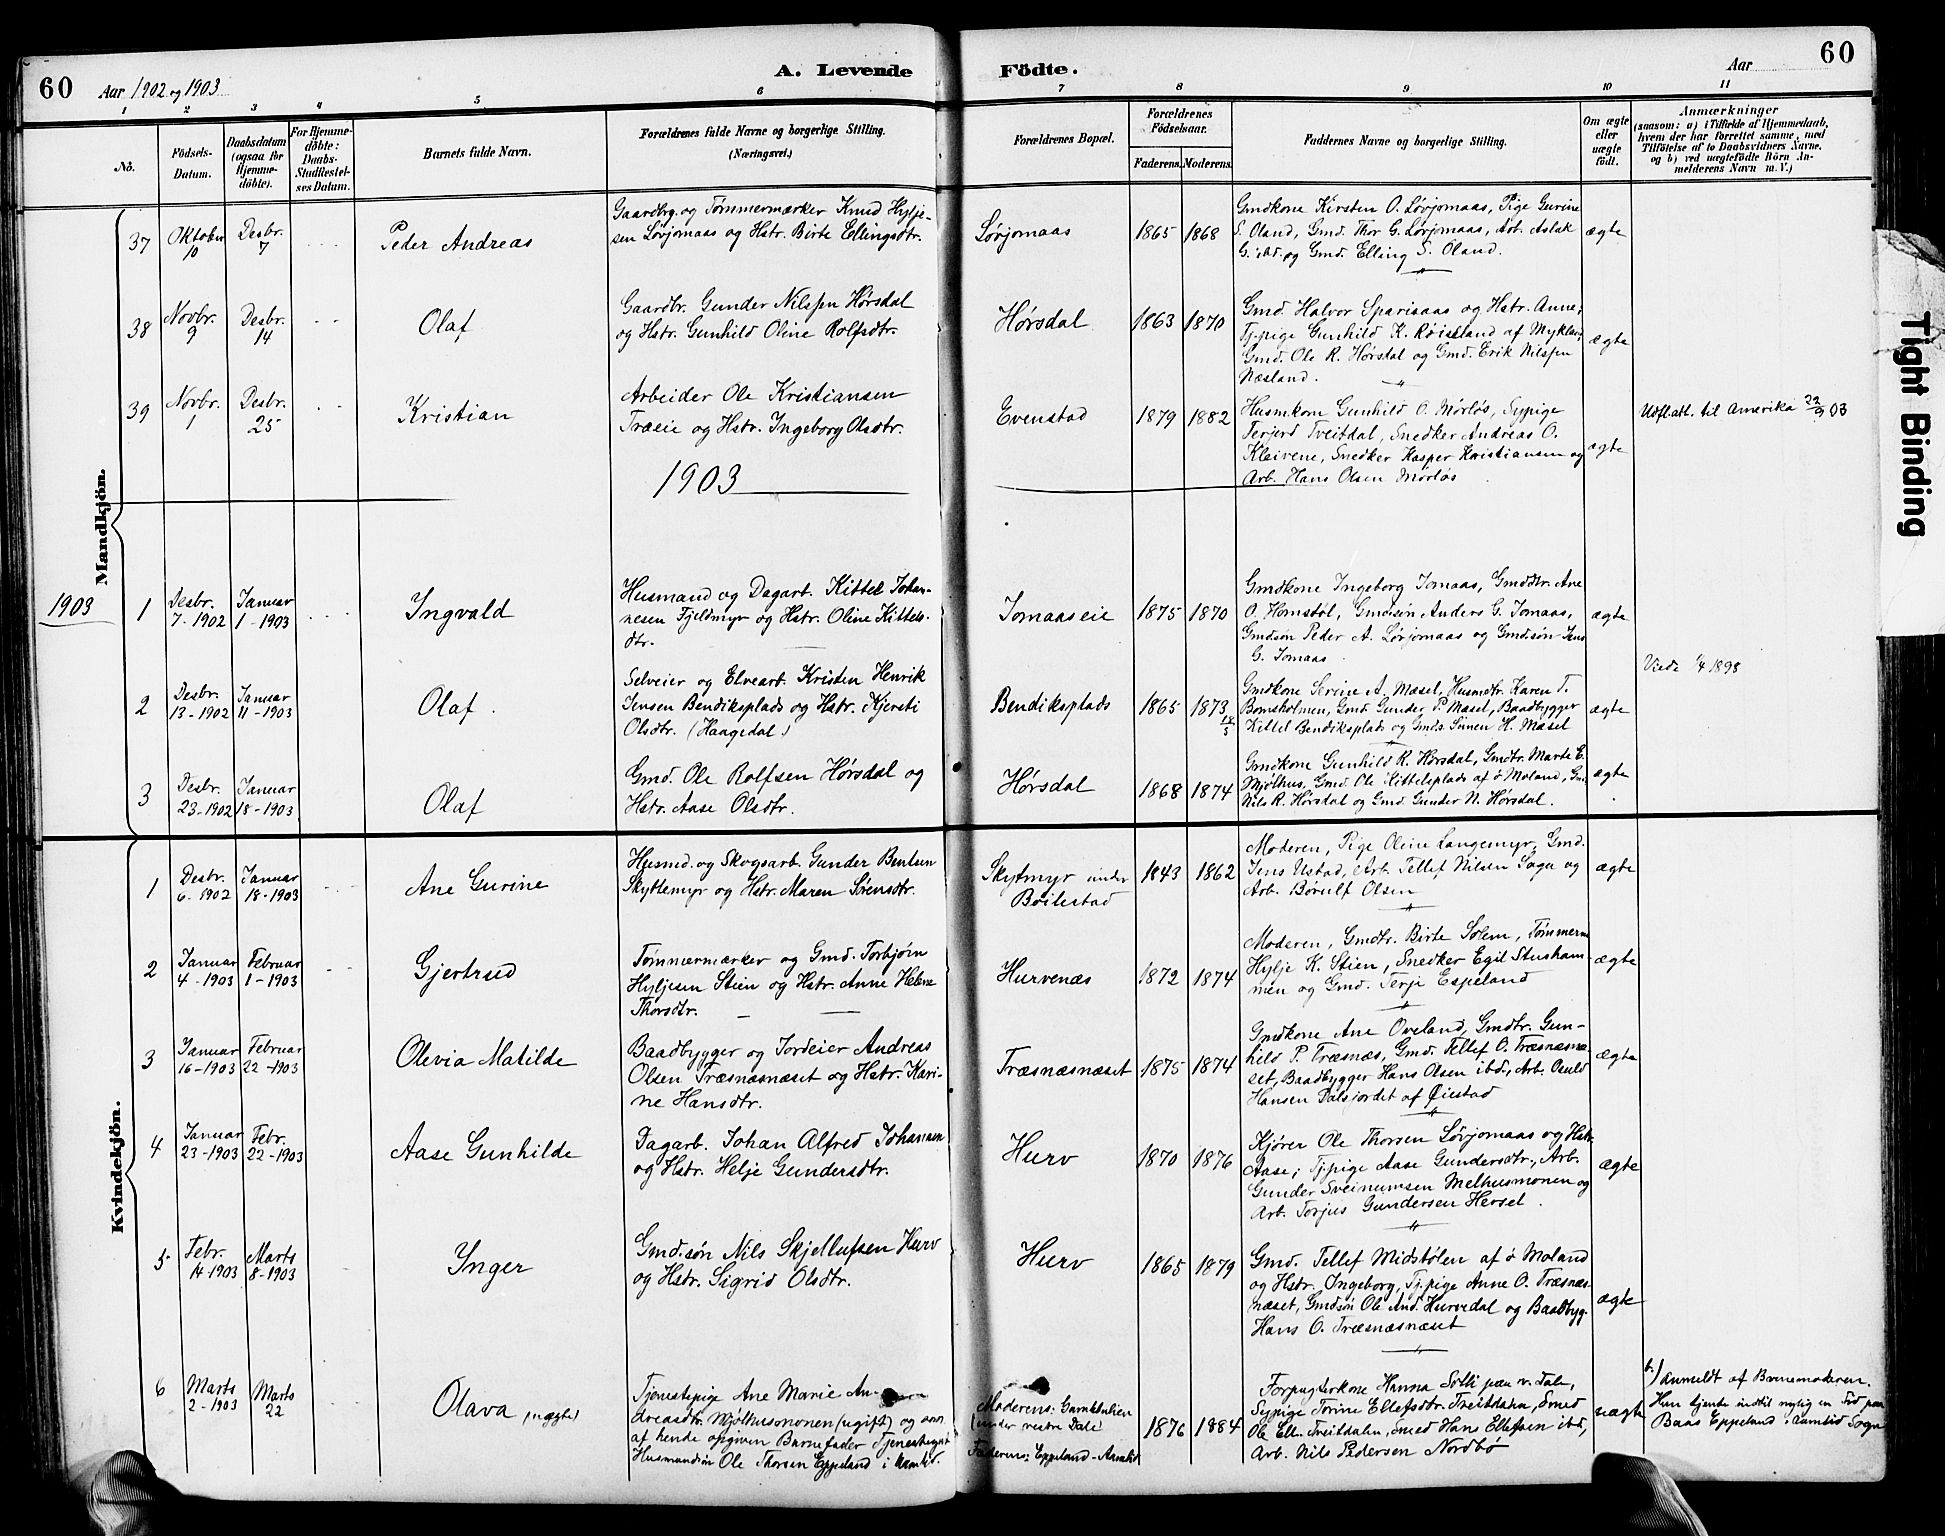 60
Aar 1902 og 1903
A. Levende Födte.
Aar
60
1 2 3 4 5 6 7 8 9 10 11
No.
Födsels-Datum.
Daabsdatum (ogsaa for Hjemmedöbte).
For Hjemmedöbte: Daabs-Stadfestelses Datum.
Barnets fulde Navn.
Forældrenes fulde Navne og borgerlige Stilling.
(Næringsvei.)
Forældrenes Bopæl.
Forældrenes Födselsaar.
Faderens. Moderens.
Faddernes Navne og borgerlige Stilling.
Om ægte eller uægte födt.
Anmærkninger
(saasom: a) i Tilfælde af Hjemmedaab,
hvem der har forrettet samme, med
Tilföielse af to Daabsvidners Navne,
og b) ved uægtefödte Börn An-
melderens Navn m. V.)
Mandkjön.
37 Oktober 10 Desbr. 7
Peder Andreas
Gaardbr. og Tømmermærker Knud Hylje-
sen Lørjomaas og Hstr. Birte Ellingsdtr.
Lørjomaas
1865 1868
Gmdkone Kirsten O. Lørjomaas, Pige Gurine
S. Oland, Gmd. Thor G. Lørjomaas, Arb. Aslak
G. ibd. og Gmd. Elling S. Oland.
ægte
38 Novbr. 9 Desbr. 14
Olaf
Gaardbr. Gunder Nilssen Hørsdal
og Hstr. Gunhild Oline Rolfsdtr.
Hørsdal
1863 1870
Gmd. Halvor Sparisaas og Hstr. Anne,
Tj.pige Gunhild K. Røiseland af Mykland,
Gmd. Ole R. Hørsdal og Gmd. Erik Nilssen
Næsland.
ægte
39 Novbr. 1 Desbr. 25
Kristian
Arbeider Ole Kristiansen
Træeie og Hstr. Ingeborg Olsdtr.
Evenstad
1879 1882
Husmkone Gunhild O. Mørløs, Sypige
Terjerd Tveitdal, Snedker Andreas O.
Kleivene, Snedker Kasper Kristiansen og
Arb. Hans Olsen Mørløs
ægte
Udfl.att. til Amerika 22/9 03
1903
1903
1 Desbr. 7. 1902 Januar 1 - 1903
Ingvald
Husmand og Dagarb. Kittel Johan-
nesen Fjeldmyr og Hstr. Oline Kittels-
dtr.
Jomaaseie
1875 1870
Gmdkone Ingeborg Jomaas, Gmdstr. Ane
O. Homstøl, Gmdsøn Anders G. Jomaas,
Gmdsøn Peder A. Lørjomaas og Gmdsøn Jens
G. Jomaas
ægte
2 Desbr. 13 - 1902 Januar 11 - 1903
Olaf
Selveier og Elvearb. Kristen Henrik
Jensen Bendiksplads og Hstr. Kjersti
Olsdtr. (Haagedal)
Bendiksplads
1865 1873 18/5
Gmdkone Serine A. Mæsel, Husmdtr. Karen T.
Bomsholmen, Gmd. Gunder P. Mæsel, Baadbygger
Kittel Bendiksplads og Gmds. Simen H. Mæsel
ægte
Viede 1/4 1898
3 Desbr. 23 - 1902 Januar 18 - 1903
Olaf
Gmd. Ole Rolfsen Hørsdal og
Hstr. Aase Olsdtr.
Hørsdal
1868 1874
Gmdkone Gunhild R. Hørsdal, Gmdtr. Marte E.
Mjølhus, Gmd. Ole Kittelsplads af ø Moland, Gm.
Nils R. Hørsdal og Gmd. Gunder N. Hørsdal.
ægte
Kvindekjön.
1 Desbr. 6. 1902 Januar 18 - 1903
Ane Gurine
Husmd. og Skogsarb. Gunder Bentsen
Skyttemyr og Hstr. Maren Sørensdtr.
Skytmyr under
Bøilestad
1843 1862
Moderen, Pige Oline Langemyr, Gmd.
Jens Ustad, Arb. Tellef Nilsen Saga og
Arb. Børulf Olsen
ægte
2 Januar 4 - 1903 Februar 1 - 1903
Gjertrud
Tømmermærker og Gmd. Torbjørn
Hyljesen Stien og Hstr. Anne Helene
Thorsdtr.
Hurvenæs
1872 1874
Moderen, Gmdtr. Birte Solem, Tømmerm.
Hylje K. Stien, Snedker Egil Stusham-
men og Gmd. Terje Espeland
ægte
3 Januar 16 - 1903 Februar 22 - 1903
Olevia Matilde
Baadbygger og Jordeier Andreas
Olsen Træsnæsnæset og Hstr. Kari-
ne Hansdtr.
Træsnæsnæset
1875 1874
Gmdkone Ane Oveland, Gmdtr. Gun-
hild P. Træsnæs, Gmd. Tellef O. Træsnæsnæ-
set, Baadbygger Hans Olsen ibd., Arb. Auld
Hansen Dalsjordet af Øiestad
ægte
4 Januar 23 - 1903 Febr. 22 - 1903
Aase Gunhilde
Dagarb. Johan Alfred Johansen
og Hstr. Helje Gundersdtr.
Hurv
1870 1876
Kjører Ole Thorsen Lørjomaas og Hstr.
Aase, Tj.pige Aase Gundersdtr., Arb.
Gunder Sveinumsen Melhusmonen og
Arb. Torjus Gundersen Hersel.
ægte
5 Febr. 14 - 1903 Marts 8 - 1903
Inger
Gmd.søn Nils Skjellufsen Hurv
og Hstr. Sigrid Olsdtr.
Hurv
1865 1879
Gmd. Tellef Midtstølen af ø Moland
og Hstr. Ingeborg, Tj.pige Anne O. Træsnæs-
næset, Gmdsøn Ole And. Hurvedal og Baadbyg.
Hans O. Træsnæsnæset
ægte
6 Marts 2 - 1903 Marts 22
Olava (uægte)
Tjenestepige Ane Marie An-
dreasdtr. Mjølhusmonen (ugift) og som
af hende opgiven Barnefader Tjenestegut
Husmandsøn Ole Thorsen Eppeland i Aamlid.
Moderens:
(under vestre Dale)
Faderens: Eppeland - Aamlid
1876 1884
Forpagterkone Hanna Solli paa v. Dale,
Sypige Torine Ellefsdtr. Tveitdalm, Smed
Ole Ell. Tveitdalm, Smed Hans Ellefsen ibd,
Arb. Nils Pedersen Nordbø
uægte
b.) Anmeldt af Barnemoderen.
Hun tjente indtil nylig en Tid paa
Baas Eppeland i Aamlid Sogn
Tight Binding